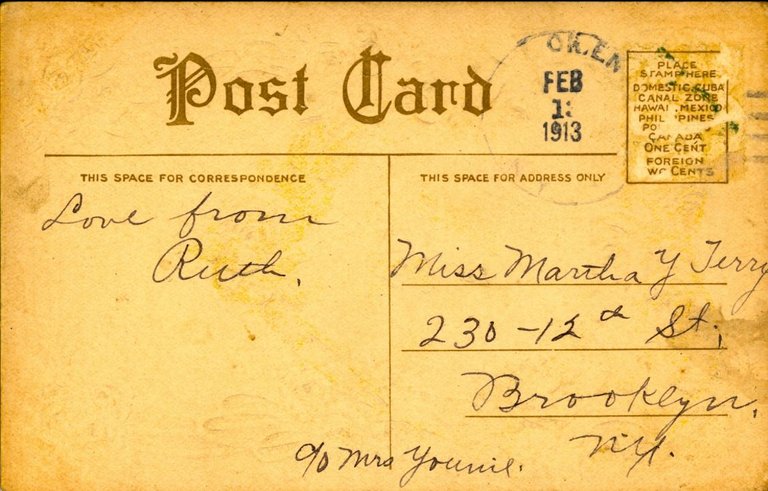 Post Card
OK.EN
FEB
1
1913
PLACE
STAMP HERE
DOMESTIC, CUBA
CANAL ZONE
HAWAI , MEXICO
PHIL PPINES
PO
CANADA
ONE CENT
FOREIGN
WO CENTS
THIS SPACE FOR CORRESPONDENCE
THIS SPACE FOR ADDRESS ONLY
Love from
Ruth.
Miss Martha Y Terry
230-12th St,
Brooklyn,
N.Y.
c/o Mrs